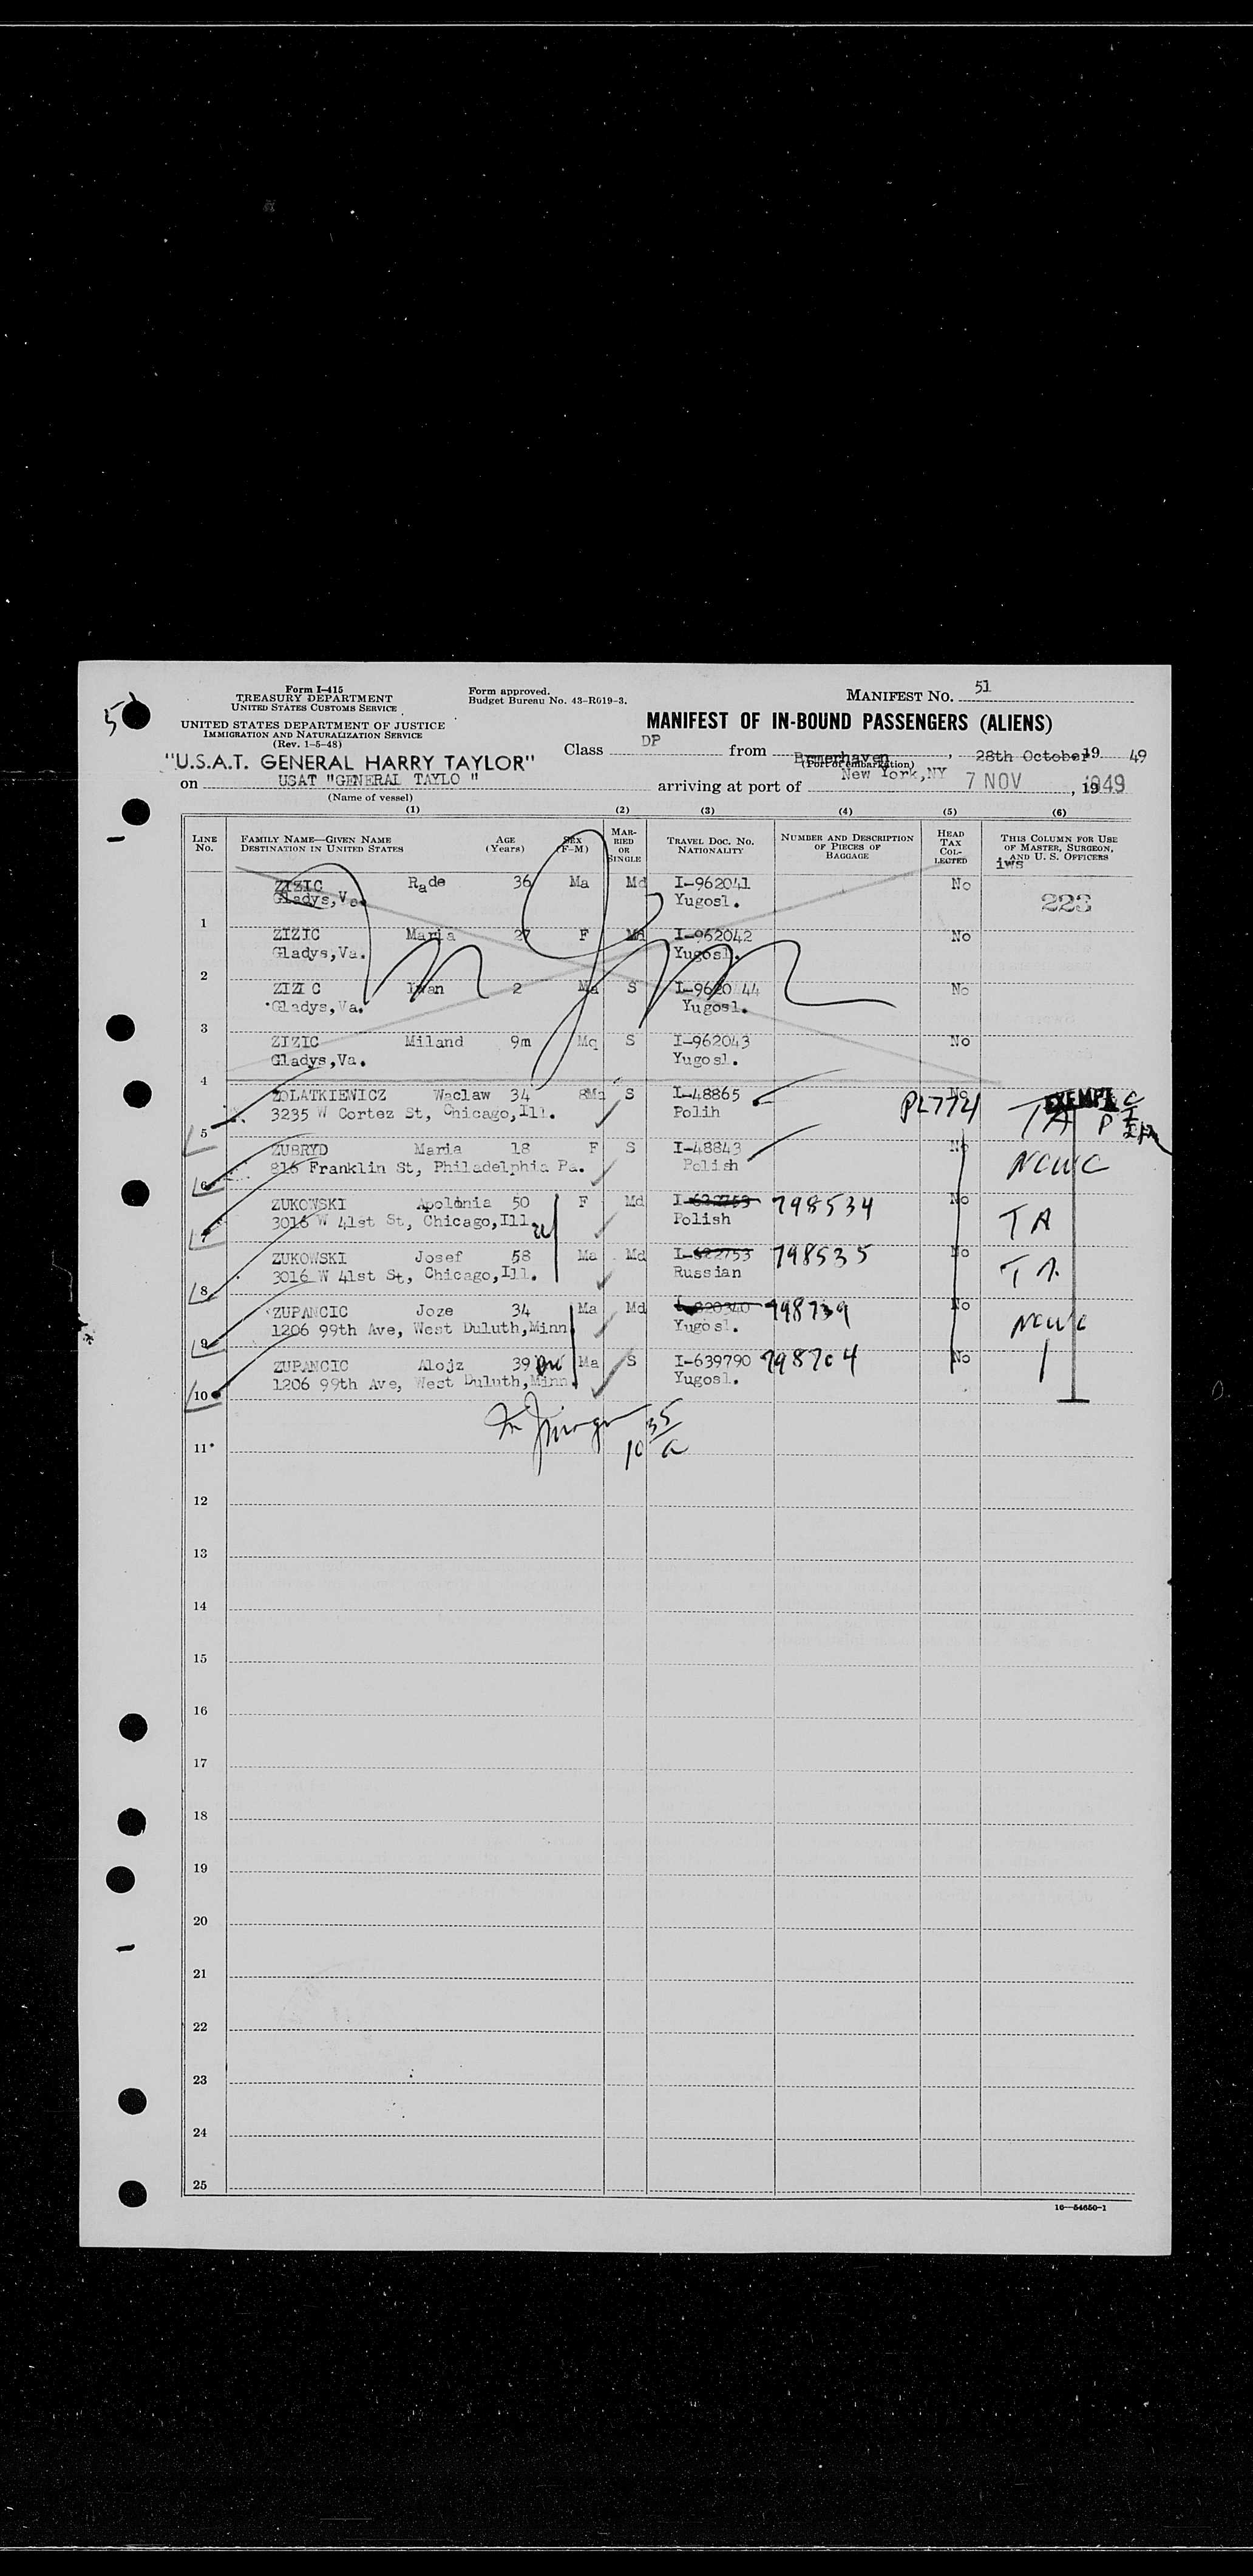 Form I-415
TREASURY DEPARTMENT
UNITED STATES CUSTOMS SERVICE
UNITED STATES DEPARTMENT OF JUSTICE
IMMIGRATION AND NATURALIZATION SERVICE
(Rev. 1-5-48)
Form approved.
Budget Bureau No. 43-R019-3.
MANIFEST NO. 51
MANIFEST OF IN-BOUND PASSENGERS (ALIENS)
Class DP from Bremerhaven, 28th October 19 49
(Port of embarkation)
"U.S.A.T. GENERAL HARRY TAYLOR"
on USAT "GENERAL TAYLO " arriving at port of New York,NY 7 NOV, 1949
(Name of vessel)
(1) (2) (3) (4) (5) (6)
LINE No. FAMILY NAME—GIVEN NAME DESTINATION IN UNITED STATES AGE (Years) SEX (F-M) MARRIED OR SINGLE TRAVEL DOC. NO. NATIONALITY NUMBER AND DESCRIPTION OF PIECES OF BAGGAGE HEAD TAX COLLECTED THIS COLUMN FOR USE OF MASTER, SURGEON, AND U. S. OFFICERS
iws
ZIZIC Rade 36 Ma Md I-962041 No
Gladys,Va. Yugosl. 223
1
ZIZIC Maria 27 F Md I-962042 No
Gladys,Va. Yugosl.
2
ZIZI C Iwan 2 Ma S I-9620 44 No
Gladys,Va. Yugosl.
3
ZIZIC Miland 9m Mq S I-962043 No
Gladys,Va. Yugosl.
4
ZOLATKIEWICZ Waclaw 34 Ma S I-48865 PL774 No TA EXEMPT
3235 W Cortez St, Chicago,Ill. Polih
5
ZUBRYD Maria 18 F S I-48843 No NCWC
816 Franklin St, Philadelphia Pa. Polish
6
ZUKOWSKI Apolonia 50 F Md I-622753 798534 No TA
3016 W 41st St, Chicago,Ill. Polish
7
ZUKOWSKI Josef 58 Ma Md I-622753 798535 No TA
3016 W 41st St, Chicago,Ill. Russian
8
ZUPANCIC Joze 34 Ma Md 820340 798739 No NCWC
1206 99th Ave, West Duluth,Minn. Yugosl.
9
ZUPANCIC Alojz 39 Ma S I-639790 798704 No
1206 99th Ave, West Duluth,Minn. Yugosl.
10
10 35/a
11
12
13
14
15
16
17
18
19
20
21
22
23
24
25
16—54650-1